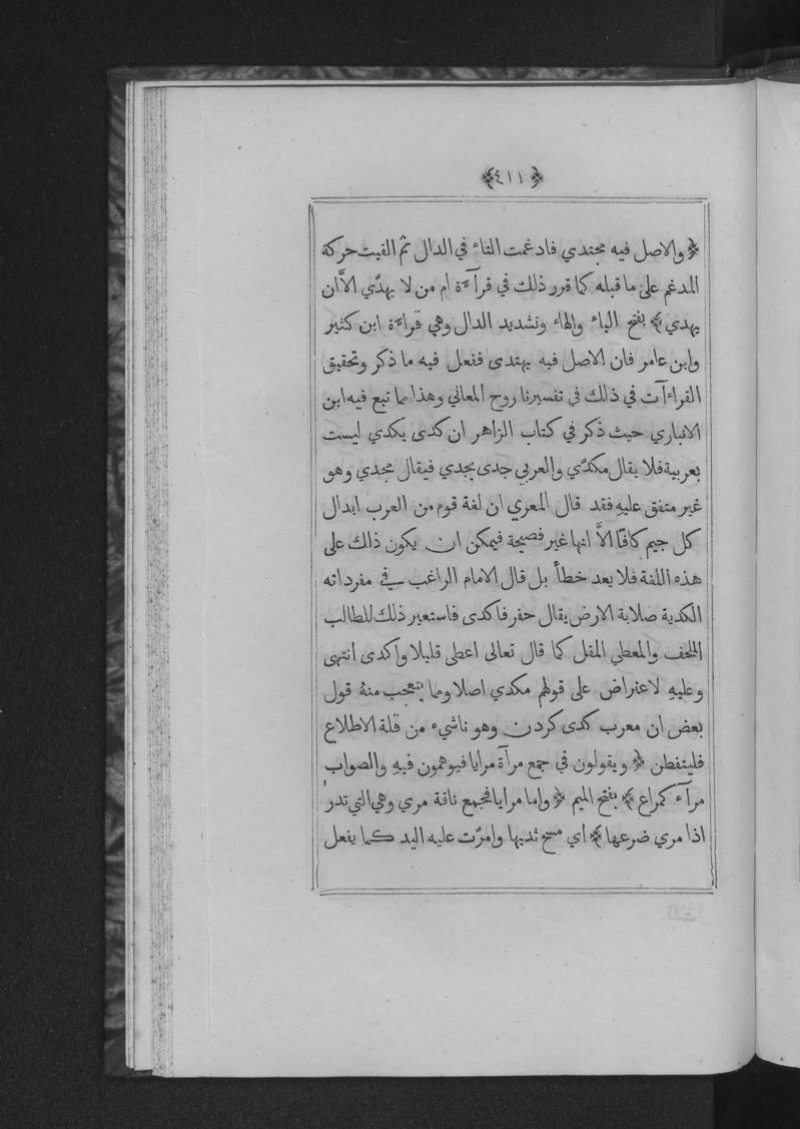 ﴿٤١١﴾
﴿ والاصل فيه مجتدي فادغمت التاء في الدال ثم القيت حركة
المدغم على ما قبله كما قرر ذلك في قرآءة ام من لا يهدّي الاَّ ان
يهدي ﴾ بفتح الياء والهاء وتشديد الدال وهي قراءة ابن كثير
وابن عامر فان الاصل فيه يهتدى ففعل فيه ما ذكر وتحقيق
القراءآت في ذلك في تفسيرنا روح المعاني وهذا مما تبع فيه ابن
الانباري حيث ذكر في كتاب الزاهر ان كدى يكدي ليست
بعربية فلا يقال مكدّي والعربي جدى يجدي فيقال مجدي وهو
غير متفق عليهِ فقد قال المعري ان لغة قوم من العرب ابدال
كل جيم كافًا الاَّ انها غير فصيحة فيمكن ان يكون ذلك على
هذه اللغة فلا يعد خطأ بل قال الامام الراغب في مفرداته
الكدية صلابة الارض يقال حفر فاكدى فاستعير ذلك للطالب
الملحف والمعطي المقل كما قال تعالى اعطى قليلا واكدى انتهى
وعليهِ لا عتراض على قولهم مكدي اصلا ومما يتعجب منهُ قول
بعض ان معرب كدى كردن وهو ناشيء من قلة الاطلاع
فليتفطن ﴿ ويقولون في جمع مرآة مرايا فيوهمون فيهِ والصواب
مرآء كمراع ﴾ بفتح الميم ﴿ واما مرايا فجمع ناقة مري وهي التي تدر
اذا مري ضرعها ﴾ اي مسح ثديها وامرّت عليه اليد كما يفعل